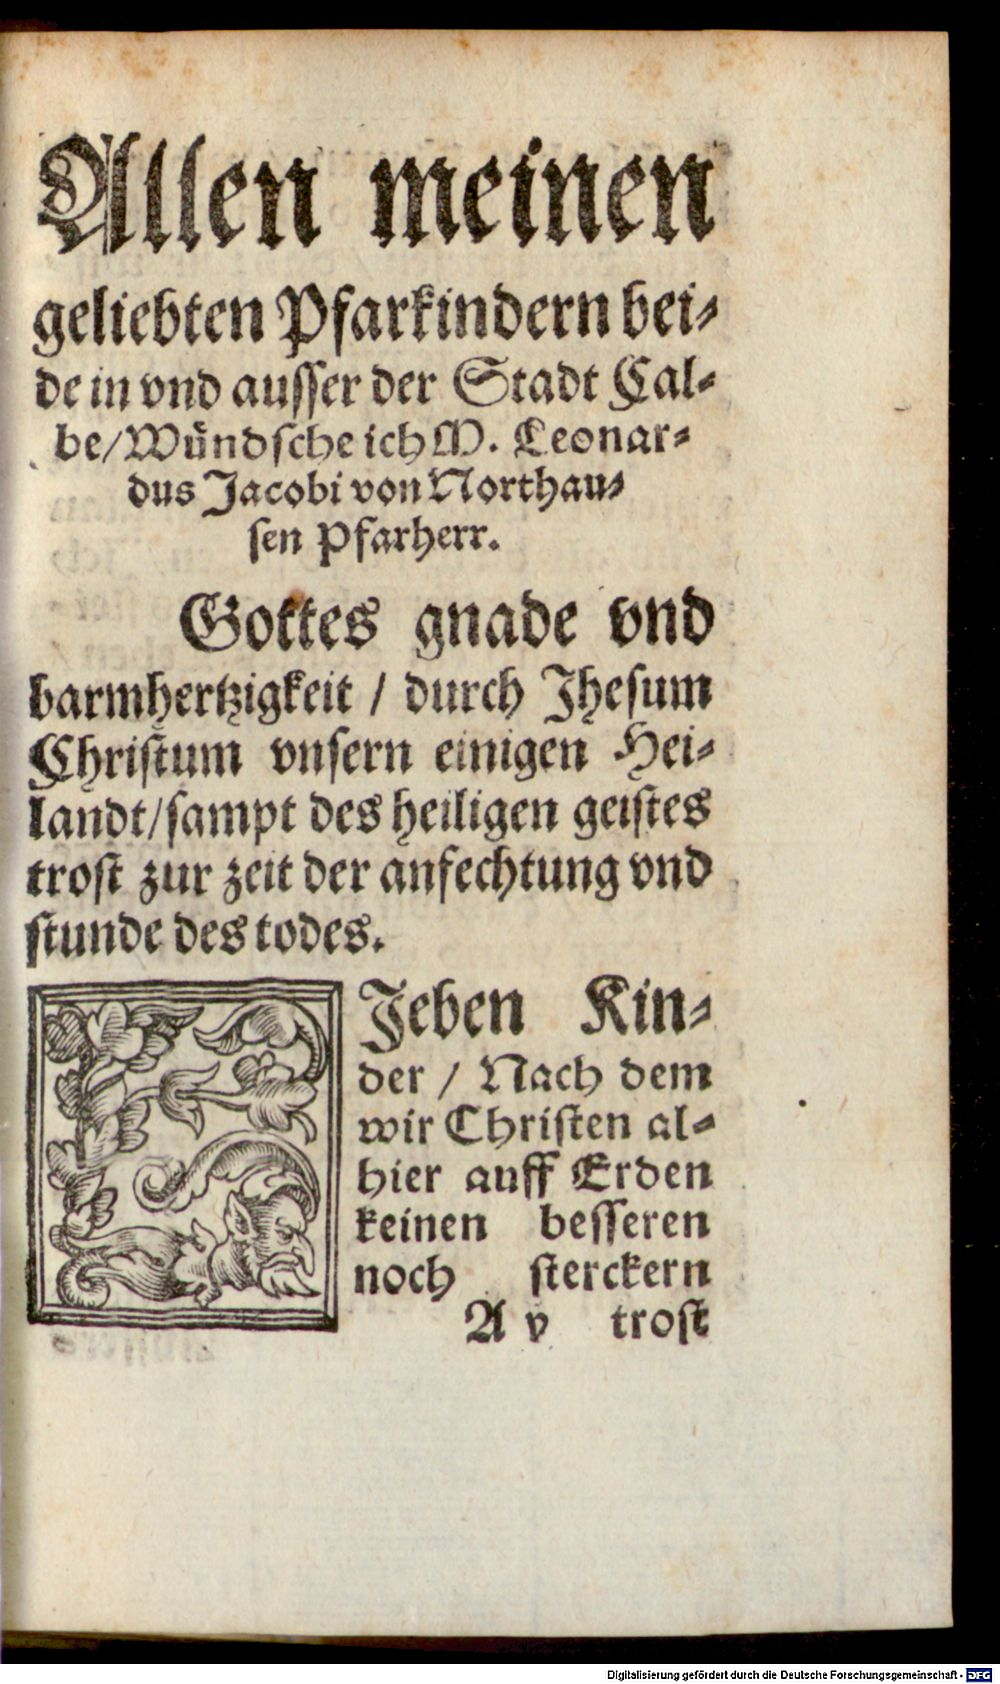 Allen meinen
geliebten Pfarkindern bei⸗
de in vnd ausser der Stadt Cal⸗
be/Wündsche ich M. Leonar⸗
dus Jacobi von Northau⸗
sen Pfarherr.
Gottes gnade vnd
barmhertzigkeit / durch Jhesum
Christum vnsern einigen Hei⸗
landt/sampt des heiligen geistes
trost zur zeit der anfechtung vnd
stunde des todes.
LJeben Kin⸗
der / Nach dem
wir Christen al⸗
hier auff Erden
keinen besseren
noch sterckern
A v trost
Digitalisierung gefördert durch die Deutsche Forschungsgemeinschaft - DFG